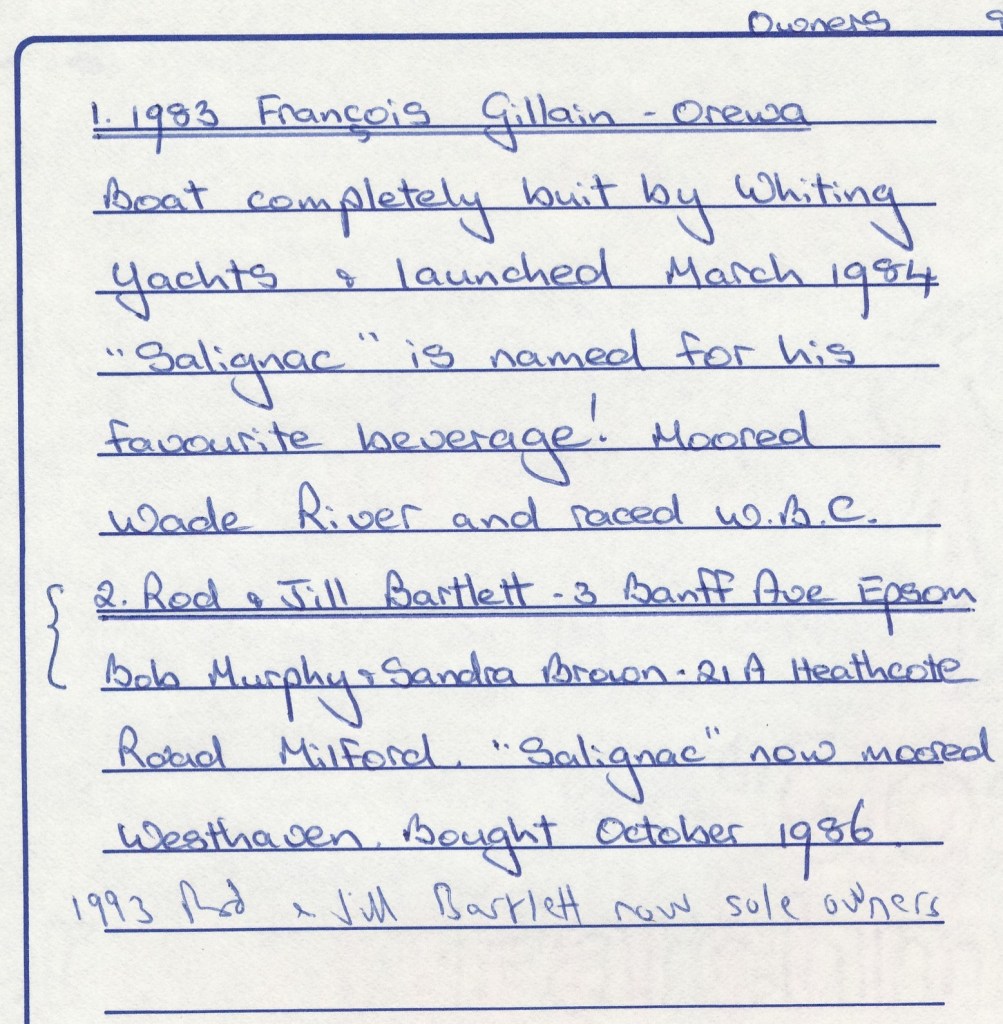 Owners
1. 1983 François Gillain - Orewa
Boat completely buit by Whiting
Yachts & launched March 1984
"Salignac" is named for his
favourite beverage! Moored
Wade River and raced W.B.C.
2. Rod & Jill Bartlett - 3 Banff Ave Epsom
Bob Murphy & Sandra Brown - 21A Heathcote
Road Milford. "Salignac" now moored
Westhaven. Bought October 1986.
1993 Rod & Jill Bartlett now sole owners